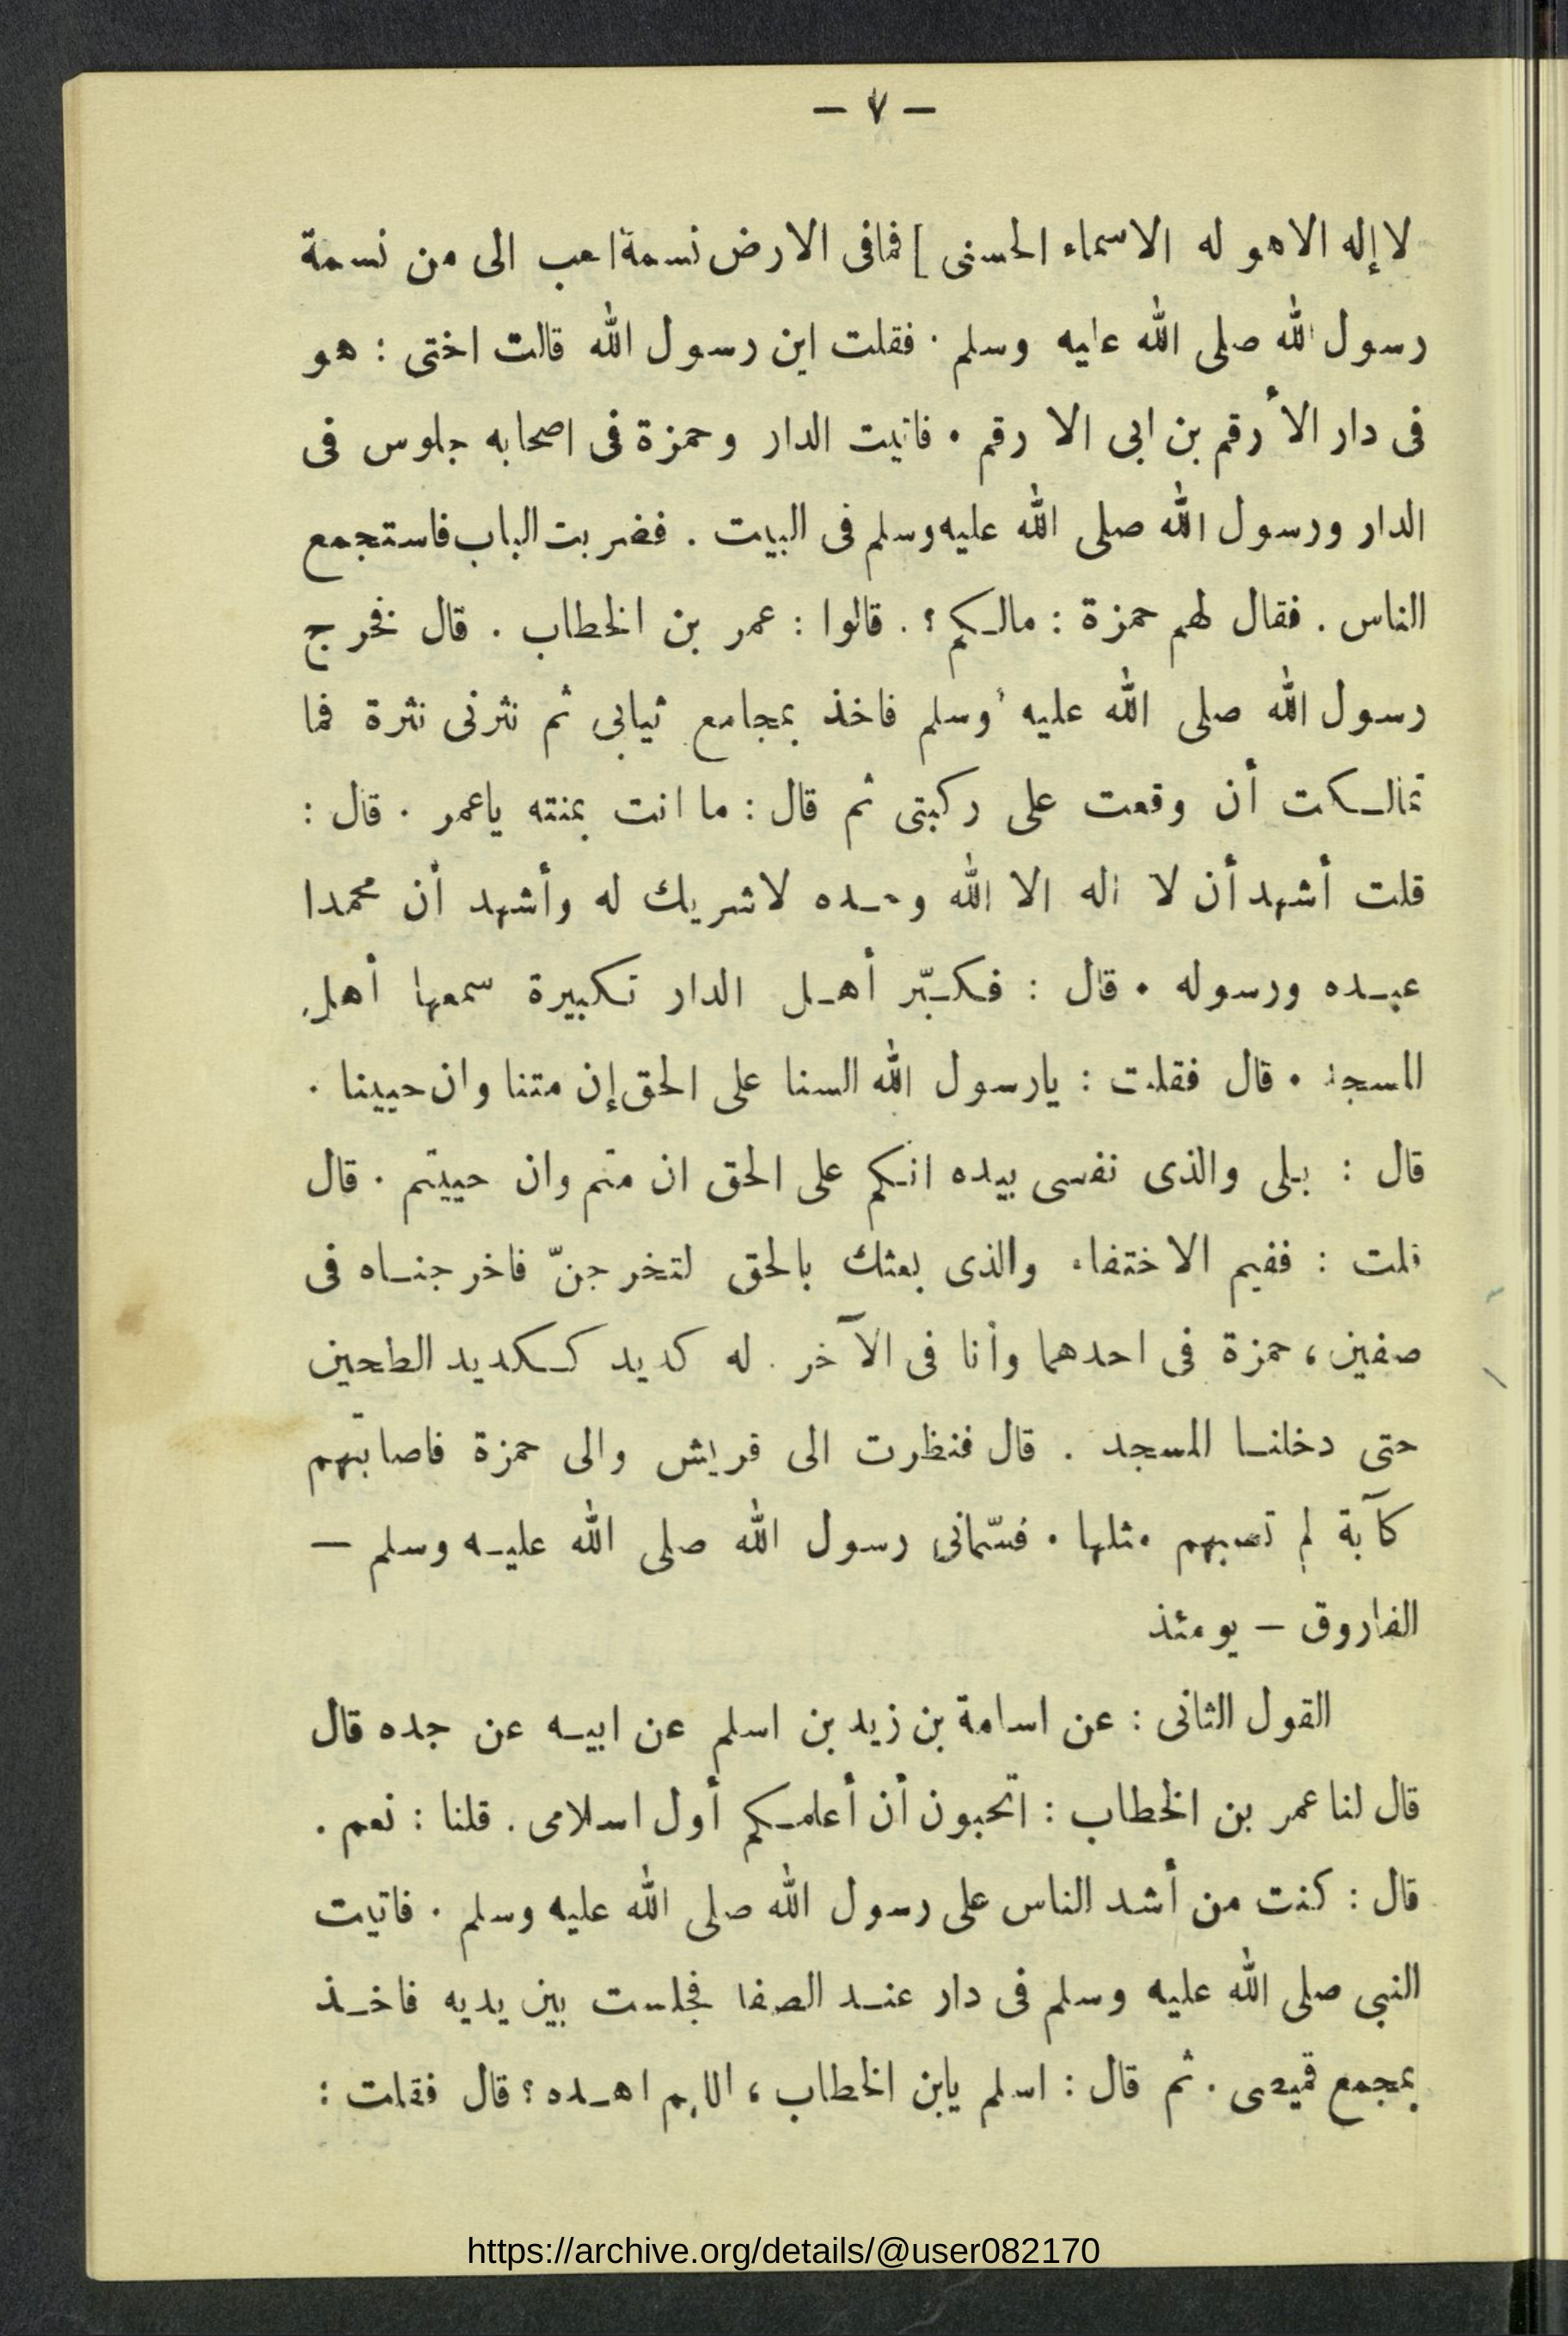 — ٧ —
لا إله الا هو له الاسماء الحسنى ] فما فى الارض نسمة احب الى من نسمة
رسول الله صلى الله عليه وسلم . فقلت اين رسول الله قالت اختى : هو
فى دار الأرقم بن ابى الارقم . فاتيت الدار وحمزة فى اصحابه جلوس فى
الدار ورسول الله صلى الله عليه وسلم فى البيت . فضربت الباب فاستجمع
الناس . فقال لهم حمزة : مالكم ؟ . قالوا : عمر بن الخطاب . قال فخرج
رسول الله صلى الله عليه وسلم فاخذ بمجامع ثيابى ثم نثرنى نثرة فما
تمالكت أن وقعت على ركبتى ثم قال : ما انت بمنته ياعمر . قال :
قلت أشهد أن لا اله الا الله وحده لاشريك له وأشهد أن محمدا
عبده ورسوله . قال : فكبّر أهل الدار تكبيرة سمعها أهل
المسجد . قال فقلت : يارسول الله السنا على الحق إن متنا وان حيينا .
قال : بلى والذى نفسى بيده انكم على الحق ان متم وان حييتم . قال
قلت : ففيم الاختفاء والذى بعثك بالحق لتخرجنّ فاخرجناه فى
صفين ، حمزة فى احدهما وأنا فى الآخر . له كديد ككديد الطحين
حتى دخلنا المسجد . قال فنظرت الى قريش والى حمزة فاصابتهم
كآبة لم تصبهم مثلها . فسّمانى رسول الله صلى الله عليه وسلم —
الفاروق — يومئذ
القول الثانى : عن اسامة بن زيد بن اسلم عن ابيه عن جده قال
قال لنا عمر بن الخطاب : اتحبون أن أعلمكم أول اسلامى . قلنا : نعم .
قال : كنت من أشد الناس على رسول الله صلى الله عليه وسلم . فاتيت
النبى صلى الله عليه وسلم فى دار عند الصفا فجلست بين يديه فاخذ
بمجمع قميصى . ثم قال : اسلم يابن الخطاب ، اللهم اهده ؟ قال فقلت :
https://archive.org/details/@user082170